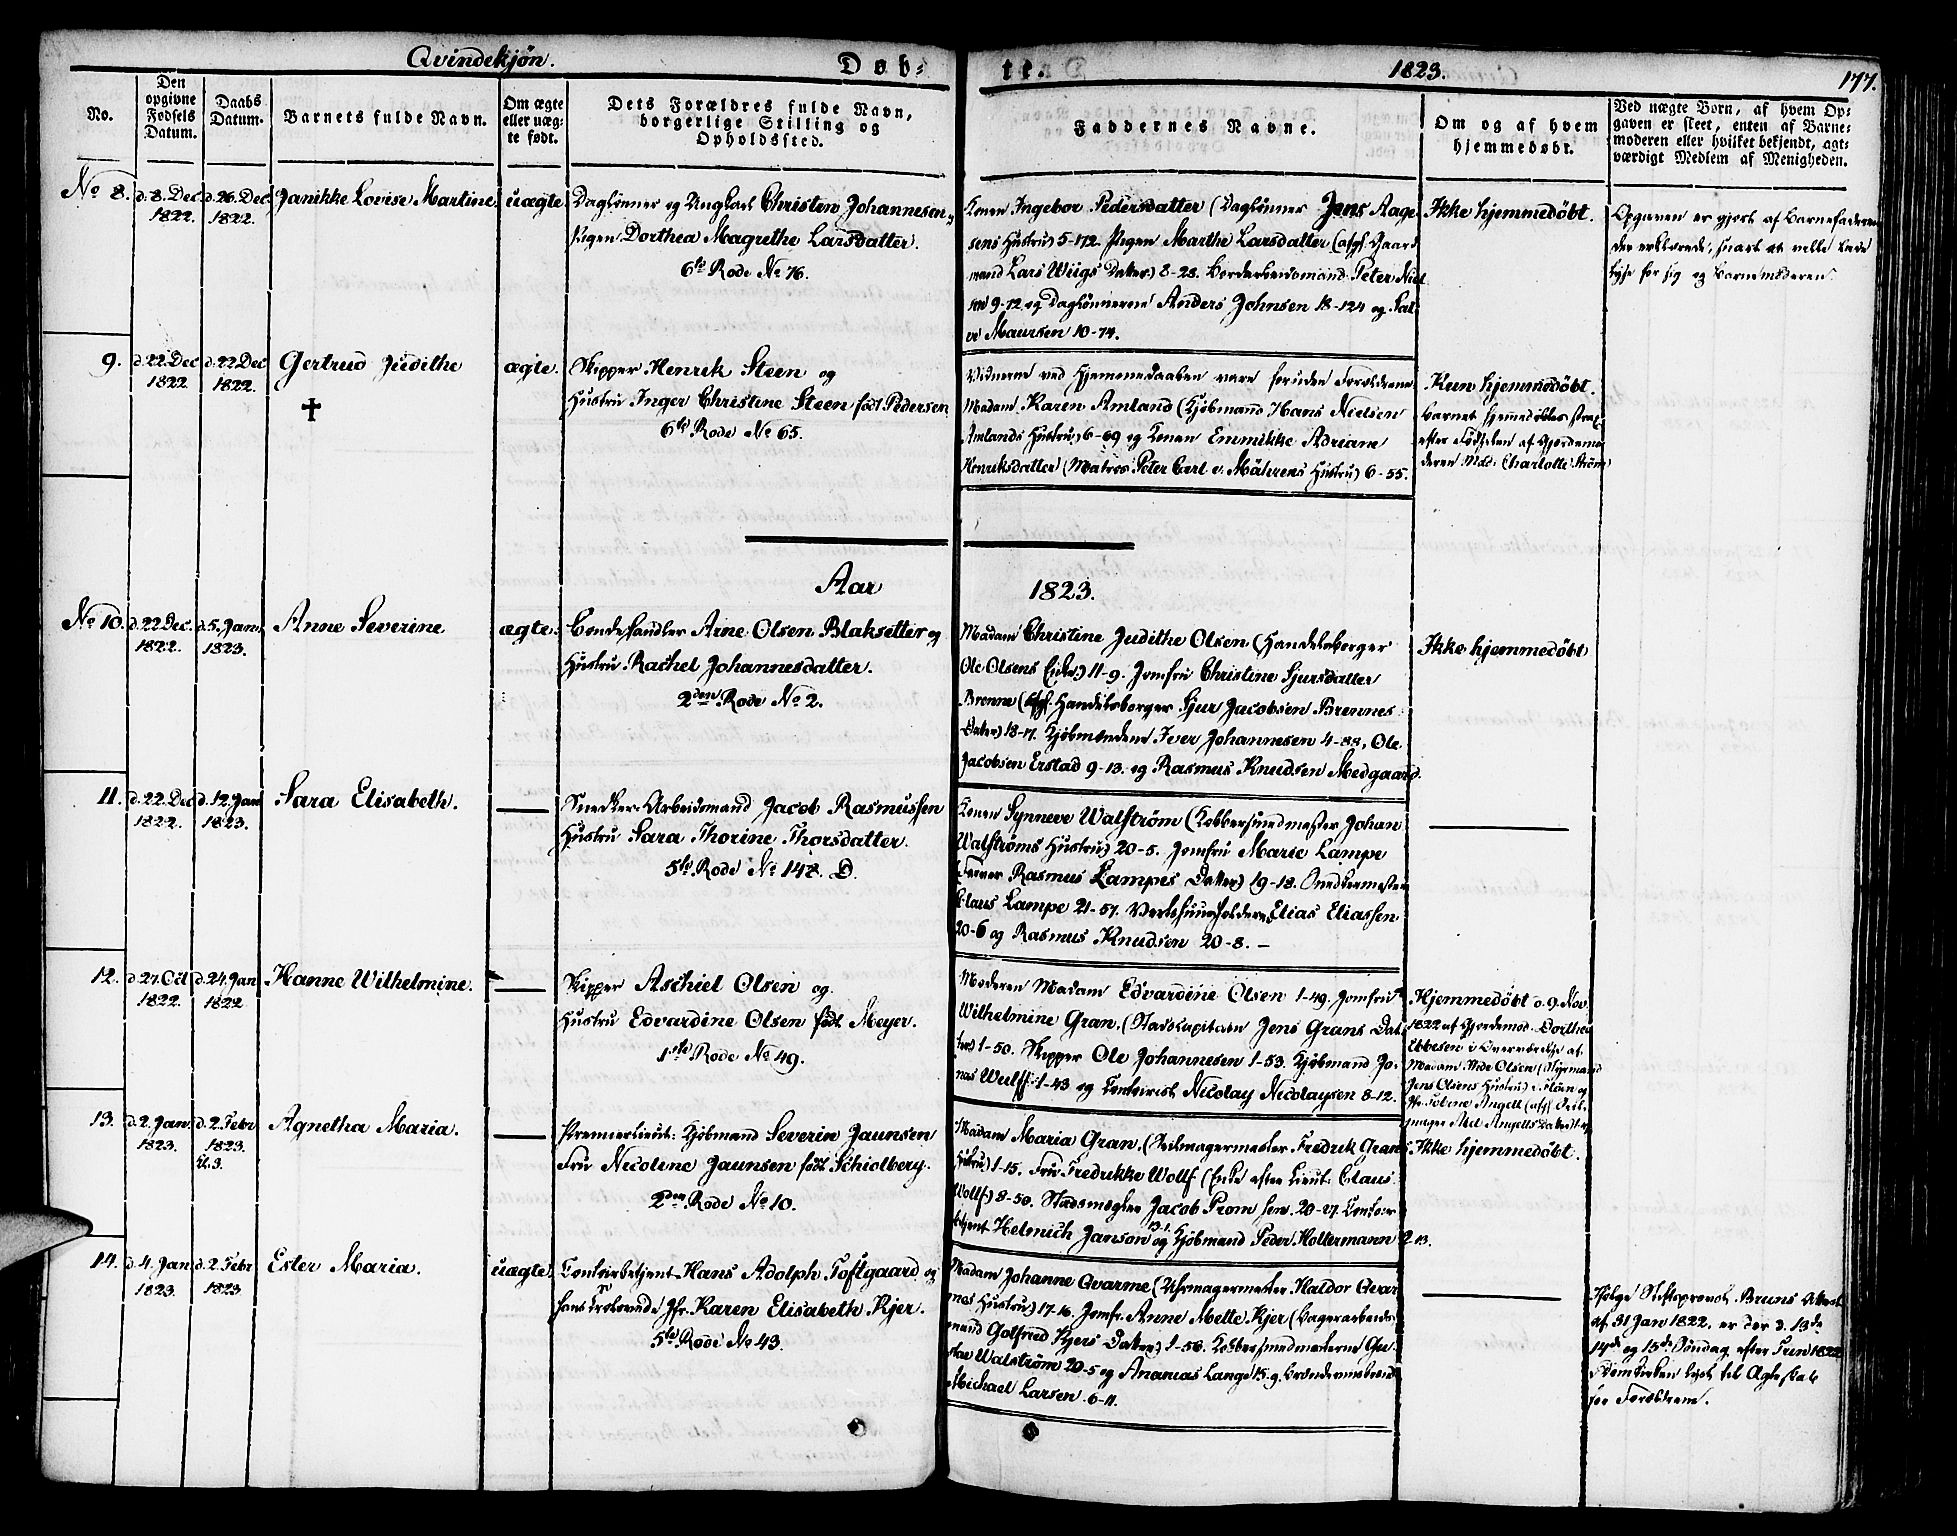 Qvindekjøn.
Døb-
te.
1823.
177.
No.
Den
opgivne
Fødsels
Datum.
Daabs
Datum.
Barnets fulde Navn.
Om ægte
eller uæg-
te født.
Dets Forældres fulde Navn,
borgerlige Stilling og
Opholdssted.
Faddernes Navne.
Om og af hvem
hjemmedøbt.
Ved uægte Børn, af hvem Op-
gaven er skeet, enten af Barne-
moderen eller hvilket bekjendt, agt-
værdigt Medlem af Menigheden.
No 8.
d. 8. Dec.
1822.
d. 26. Dec
1822.
Janikke Lovise Martine
uægte
Daglønner og Ungkarl Christen Johannesen,
Pigen Dorthea Magrethe Larsdatter.
6te Rode No 76.
Konen Ingebor Pedersdatter (Daglønner Jens Aage-
sens Hustru) 5-172. Pigen Marthe Larsdatter (afgl. Gaard
mand Lars Wiigs Datter) 8-23. Borderbeidsmand Peter Niel
sen 9-72 og Daglønnerene Anders Johnsen 18-124 og
Maursen 10-74.
Ikke hjemmedøbt.
Opgaven er gjort af Barnefaderen
der erklærede, snart at ville lade
lyse for sig og Barnemoderen.
9.
d. 22. Dec
1822
d. 22 Dec
1822.
Gertrud Judithe
ægte.
Skipper Henrik Steen og
Hustru Inger Christine Steen født Pedersen
6te Rode No 65.
Vidnerne ved Hjemmedaaben vare foruden Forældrene
Madam Karen Amland (Kjøbmand Hans Nielsen
Amlands Hustru) 6-69 og Konen Emmikke Adriane
Henriksdatter (Matros Peter Carl v. Mährens Hustru) 6-55.
Kun hjemmedøbt.
Barnet hjemmedøbtes strax
efter Fødselen af Gjordemo-
deren Mad: Charlotte Strøm
Aar
1823.
No 10.
d. 22. Dec.
1822.
d. 5. Jan.
1823.
Anne Severine
ægte.
Bondehandler Arne Olsen Blaksetter og
Hustru Rachel Johannesdatter.
2den Rode No 2.
Madam Christine Judithe Olsen (Handelsborger
Ole Olsens Enke) 11-9. Jomfru Christine Sjursdatter
Brenne (afgl. Handelsborger Sjur Jacobsen Brennes
Datter) 18-17. Kjøbmændene Iver Johannesen 4-88, Ole
Jacobsen Erstad 9-13. og Rasmus Knudsen Medgaard
Ikke hjemmedøbt
11.
d. 22. Dec
1822.
d. 12. Jan
1823.
Sara Elisabeth.
Snedker-Arbeidsmand Jacob Rasmussen
Hustru Sara Thorine Thorsdatter.
5te Rode No 147. D.
Konen Synneve Walstrøm (Kobbersmedmester Johan
Walstrøms Hustru) 20-5. Jomfru Marie Lampe
Rasmus Lampes Datter) 19-18. Snedkermester
Claus Lampe 21-57. Vertshuusholderne Elias Eliassen
20-6 og Rasmus Knudsen 20-8. –
12.
d. 27. Oct
1822.
d. 24. Jan
1822
Hanne Wilhelmine.
Skipper Aschiel Olsen og
Hustru Edvardine Olsen født Meyer.
1ste Rode No 49.
Moderen Madam Edvardine Olsen 1-49. Jomfru
Wilhelmine Gran. (Stadskapitain Jens Grans Dat-
ter) 1-50. Skipper Ole Johannesen 1-53. Kjøbmand Jo-
nas Wulff 1-43 og Contoirist Nicolay Nicolaysen 8-12.
Hjemmedøbt d. 9. Nov.
1822 af Gjordemod. Dorthea
Ebbesen i Overværelse af
Madam Olsen (Skipmand
Jens Olsens Hustru) i Floen og
Jfr Toline Angell (afgl. Seil-
mager Angells Datter) 1-4
13.
d. 2. Jan.
1823.
d. 2. Febr
1823.
Kl. 3.
Agnetha Maria.
Premierlieut: Kjøbmand Severin Jaunsen
Fru Nicoline Jaunsen født Schiolberg.
2den Rode No 10.
Madam Maria Gran. (Seilmagermester Fredrik Gran
Hustru) 1-15. Fru Fredrikke Wolff (Enke efter Lieut: Claus
Wolff) 8-50. Stadsmegler Jacob Prom sen. 20-27. Contoir
betjent Helmich Janson 13-1. og Kjøbmand Peder Holtermann 2 13.
Ikke hjemmedøbt.
14.
d. 4. Jan
1823.
d. 2. Febr
1823
Ester Maria.
uægte.
Contoirbetjent Hans Adolph Toftgaard og
hans Trolovede Jfr. Karen Elisabeth Kjer.
5te Rode No 43.
Madam Johanne Qvarme (Uhrmagermester Haldor Qvar
mes Hustru) 17-16. Jomfr. Anne Mette Kjer (Bagerarbeids-
mand Gotfried Kjers Datter) 1-56. Kobbersmedmesterne Gu-
stav Walstrøm 20-5 og Ananias Lange 15-9. Brøndermester
Michael Larsen 6-11.
Ifølge Stiftsprovst Bruns Attest
af 31 Jan 1822. er der d. 13de
14de og 15de Søndag efter Trin 1822
i Domkirken lyst til Ægteskab
for Forældrene.